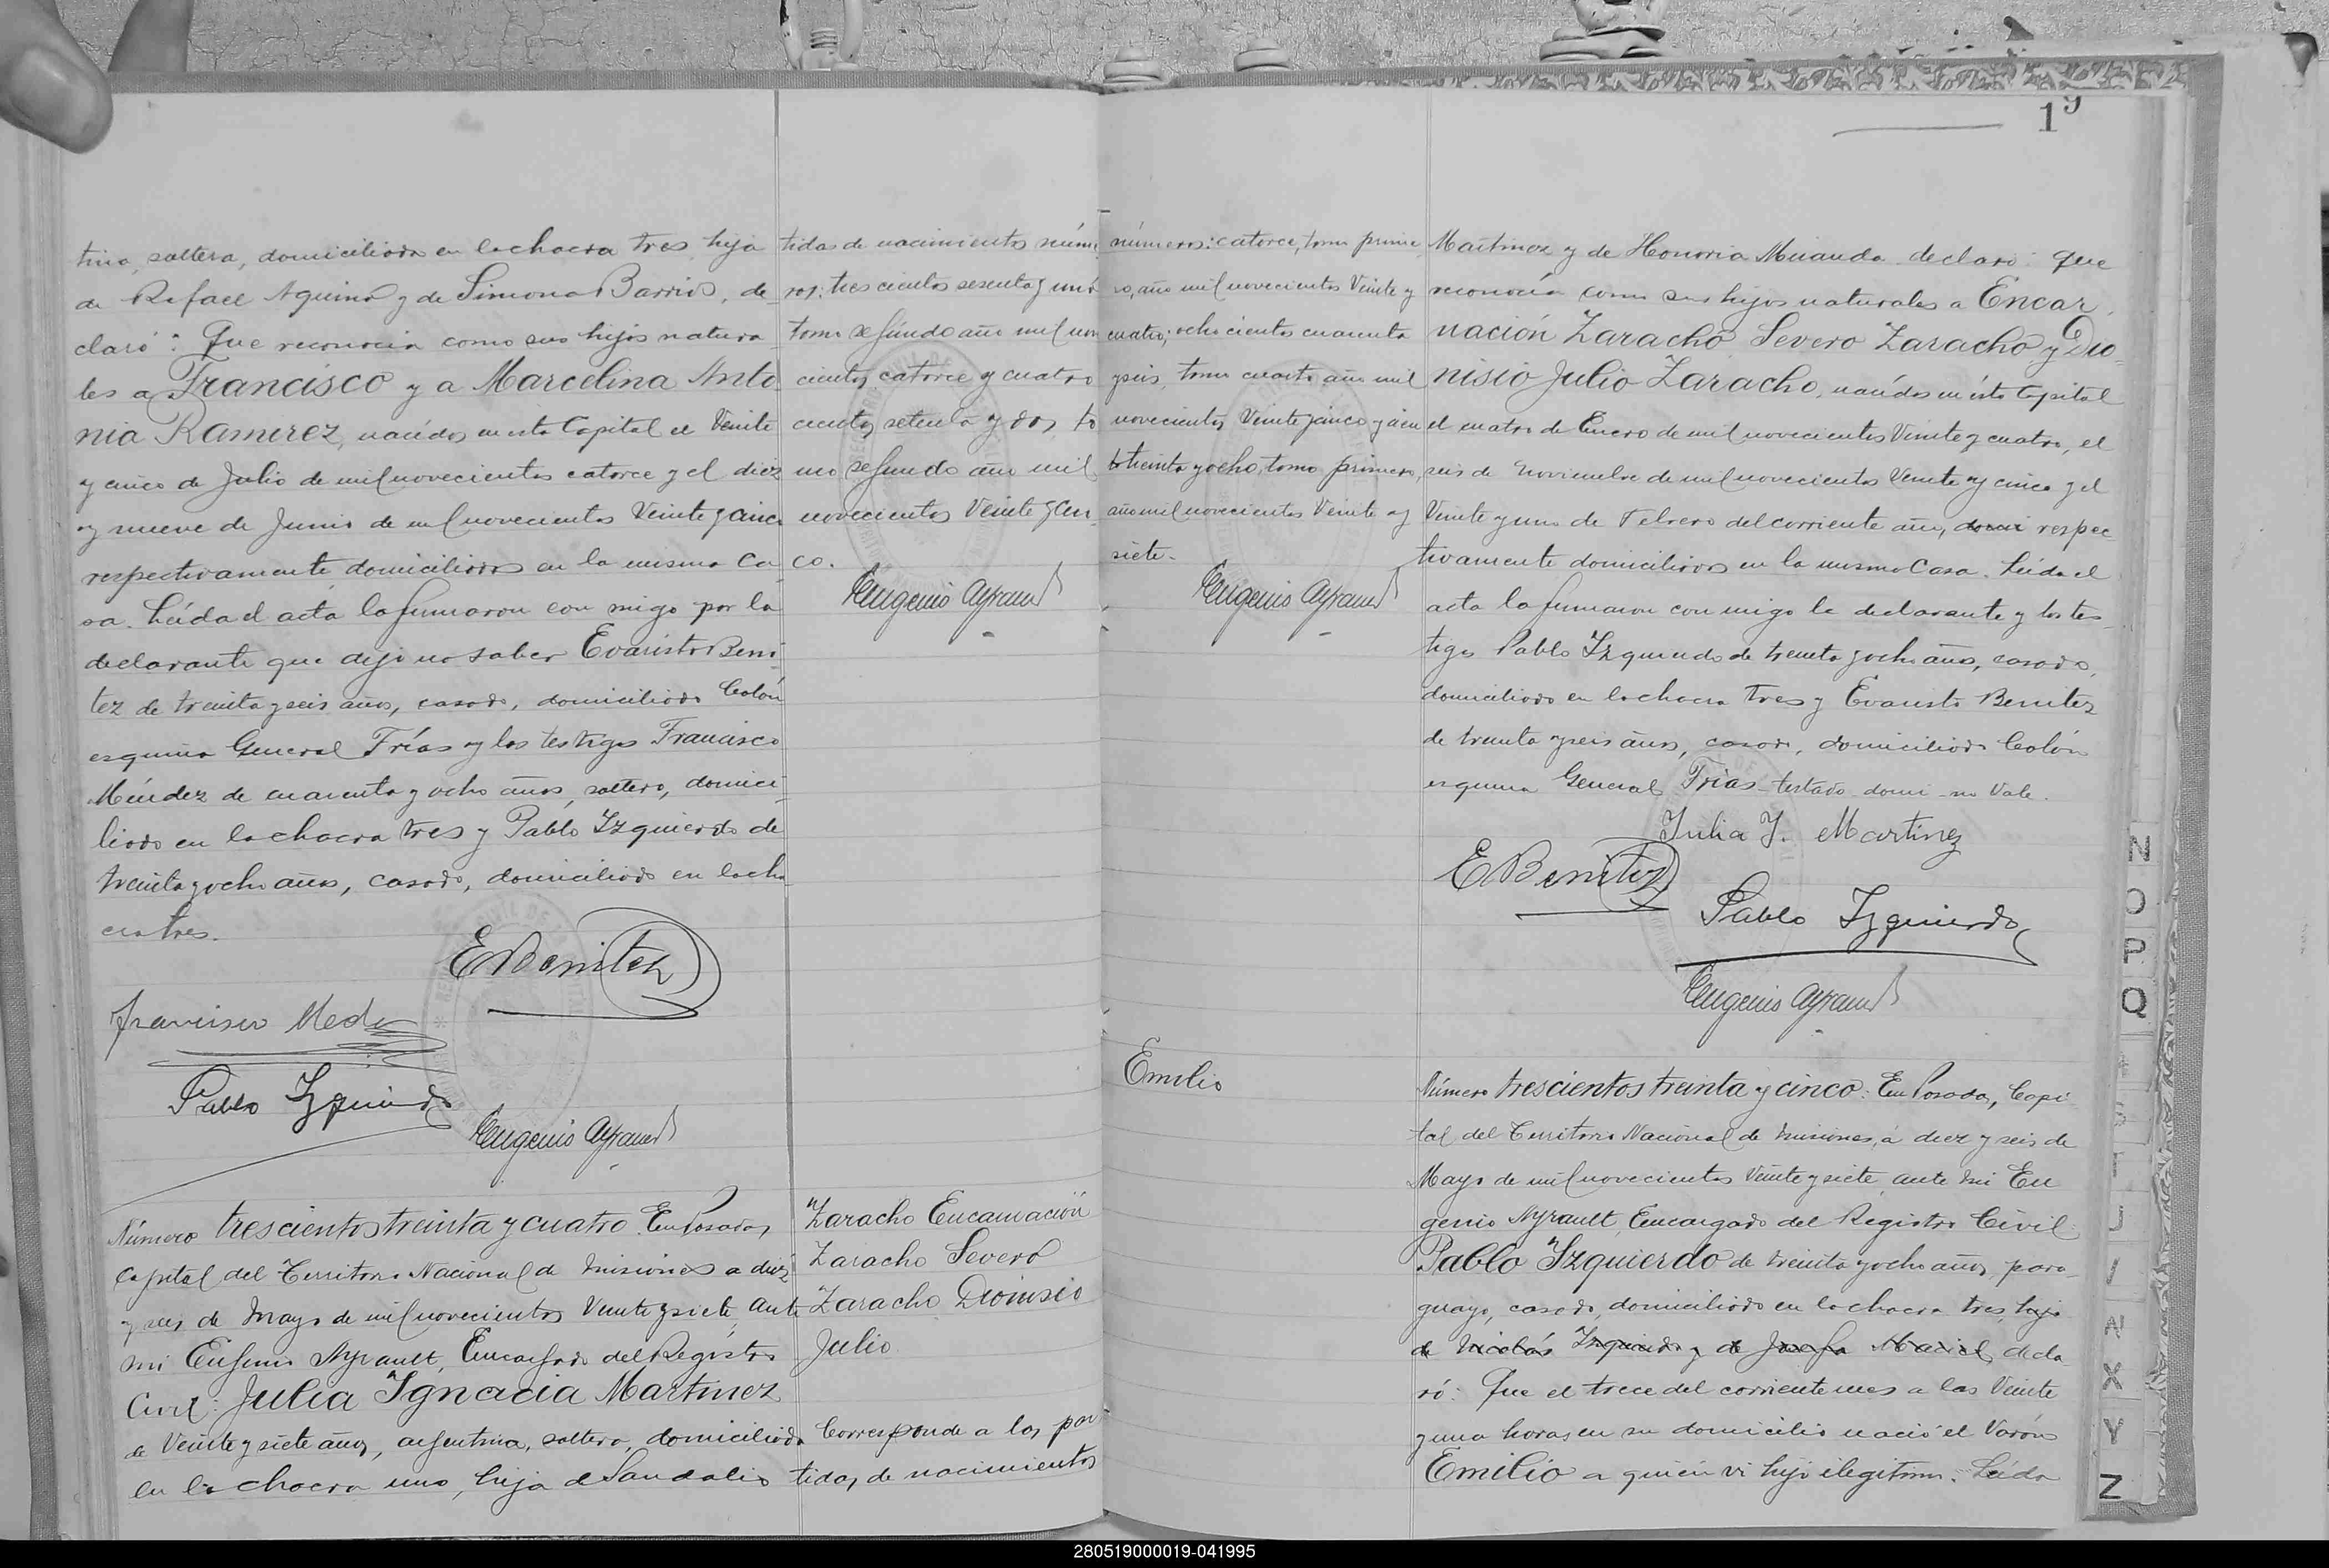 tina, soltera, domiciliada en la chacra tres, hija
de Rafael Aquino y de Simona Barrios, de
claró: Que reconocia como sus hijos natura
les a Francisco y a Marcelina Anto
nia Ramirez, nacidos en esta Capital el Veinte
y cinco de Julio de mil novecientos catorce y el diez
y nueve de Junio de mil novecientos Veinte y cinco
respectivamente, domiciliados en la misma ca
sa. Leída el acta la firmaron con migo por la
declarante que dijo no saber Evaristo Beni
tez de treinta y seis años, casado, domiciliado Colón
esquina General Frías y los testigos Francisco
Méndez de cuarenta y ocho años, soltero, domici
liado en la chacra tres y Pablo Izquierdo de
treinta y ocho años, casado, domiciliado en la cha
cra tres.
E Benitez
Francisco
Pablo Izquierdo
Eugenio Ayrault
tidas de nacimientos núme
ros: tres cientos sesenta y uno
tomo segundo año mil nove
cientos catorce y cuatro
cientos setenta y dos, to
mo segundo año mil
novecientos Veinte y cin
co.
Eugenio Ayrault
Número trescientos treinta y cuatro. En Posadas,
Capital del Territorio Nacional de Misiones a diez
y seis de Mayo de mil novecientos Veinte y siete, ante
mi Eugenio Ayrault, Encargado del Registro
Civil: Julia Ignacia Martinez
de Veinte y siete años, argentina, soltera, domiciliada
en la chacra uno, hija de Sandalio
Zaracho Encarnación
Zaracho Severo
Zaracho Dionisio
Julio.
Corresponde a las par
tidas de nacimientos
19
números: catorce, tomo prime
ro, año mil novecientos Veinte y
cuatro; ochocientos cuarenta
y seis, tomo cuarto año mil
novecientos Veinte y cinco y cien
to treinta y ocho, tomo primero,
año mil novecientos Veinte y
siete.
Eugenio Ayrault
Martinez y de Honoria Miranda declaró: que
reconocía como sus hijos naturales a Encar
nación Zaracho, Severo Zaracho y Dio
nisio Julio Zaracho, nacidos en ésta Capital
el cuatro de Enero de mil novecientos Veinte y cuatro, el
seis de Noviembre de mil novecientos Veinte y cinco y el
Veinte y uno de Febrero del corriente año, domi respec
tivamente domiciliados en la misma Casa. Leída el
acta la firmaron con migo la declarante y los tes
tigos Pablo Izquierdo de treinta y ocho años, casado,
domiciliado en la chacra tres y Evaristo Benitez
de treinta y seis años, casado, domiciliado Colón
esquina General Frías - testado - domi - no Vale.
Julia I. Martinez
E Benitez
Pablo Izquierdo
Eugenio Ayrault
Emilio
Número trescientos treinta y cinco: En Posadas, Capi
tal del Territorio Nacional de Misiones, á diez y seis de
Mayo de mil novecientos Veinte y siete, ante mi Eu
genio Ayrault, Encargado del Registro Civil:
Pablo Izquierdo de treinta y ocho años, para
guayo, casado, domiciliado en la chacra tres, hijo
de Nicolás Izquierdo y de Josefa Maciel, decla
ró: Que el trece del corriente mes a las Veinte
y una horas, en su domicilio nació el Varón
Emilio a quién vi hijo ilegitimo. Leída
N
O
P
Q
X
Y
Z
280519000019-041995